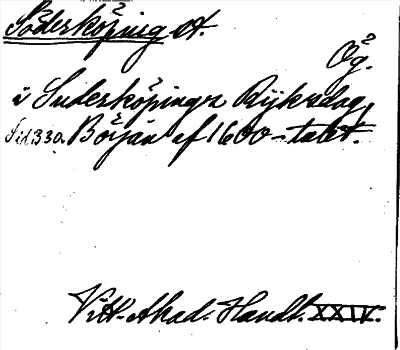 Söderköping st.
Ög.
i Suderköpinga Rijksdag,
Sid 330. Början af 1600-talet.
Vitt. Akad. Handl. XXIV.